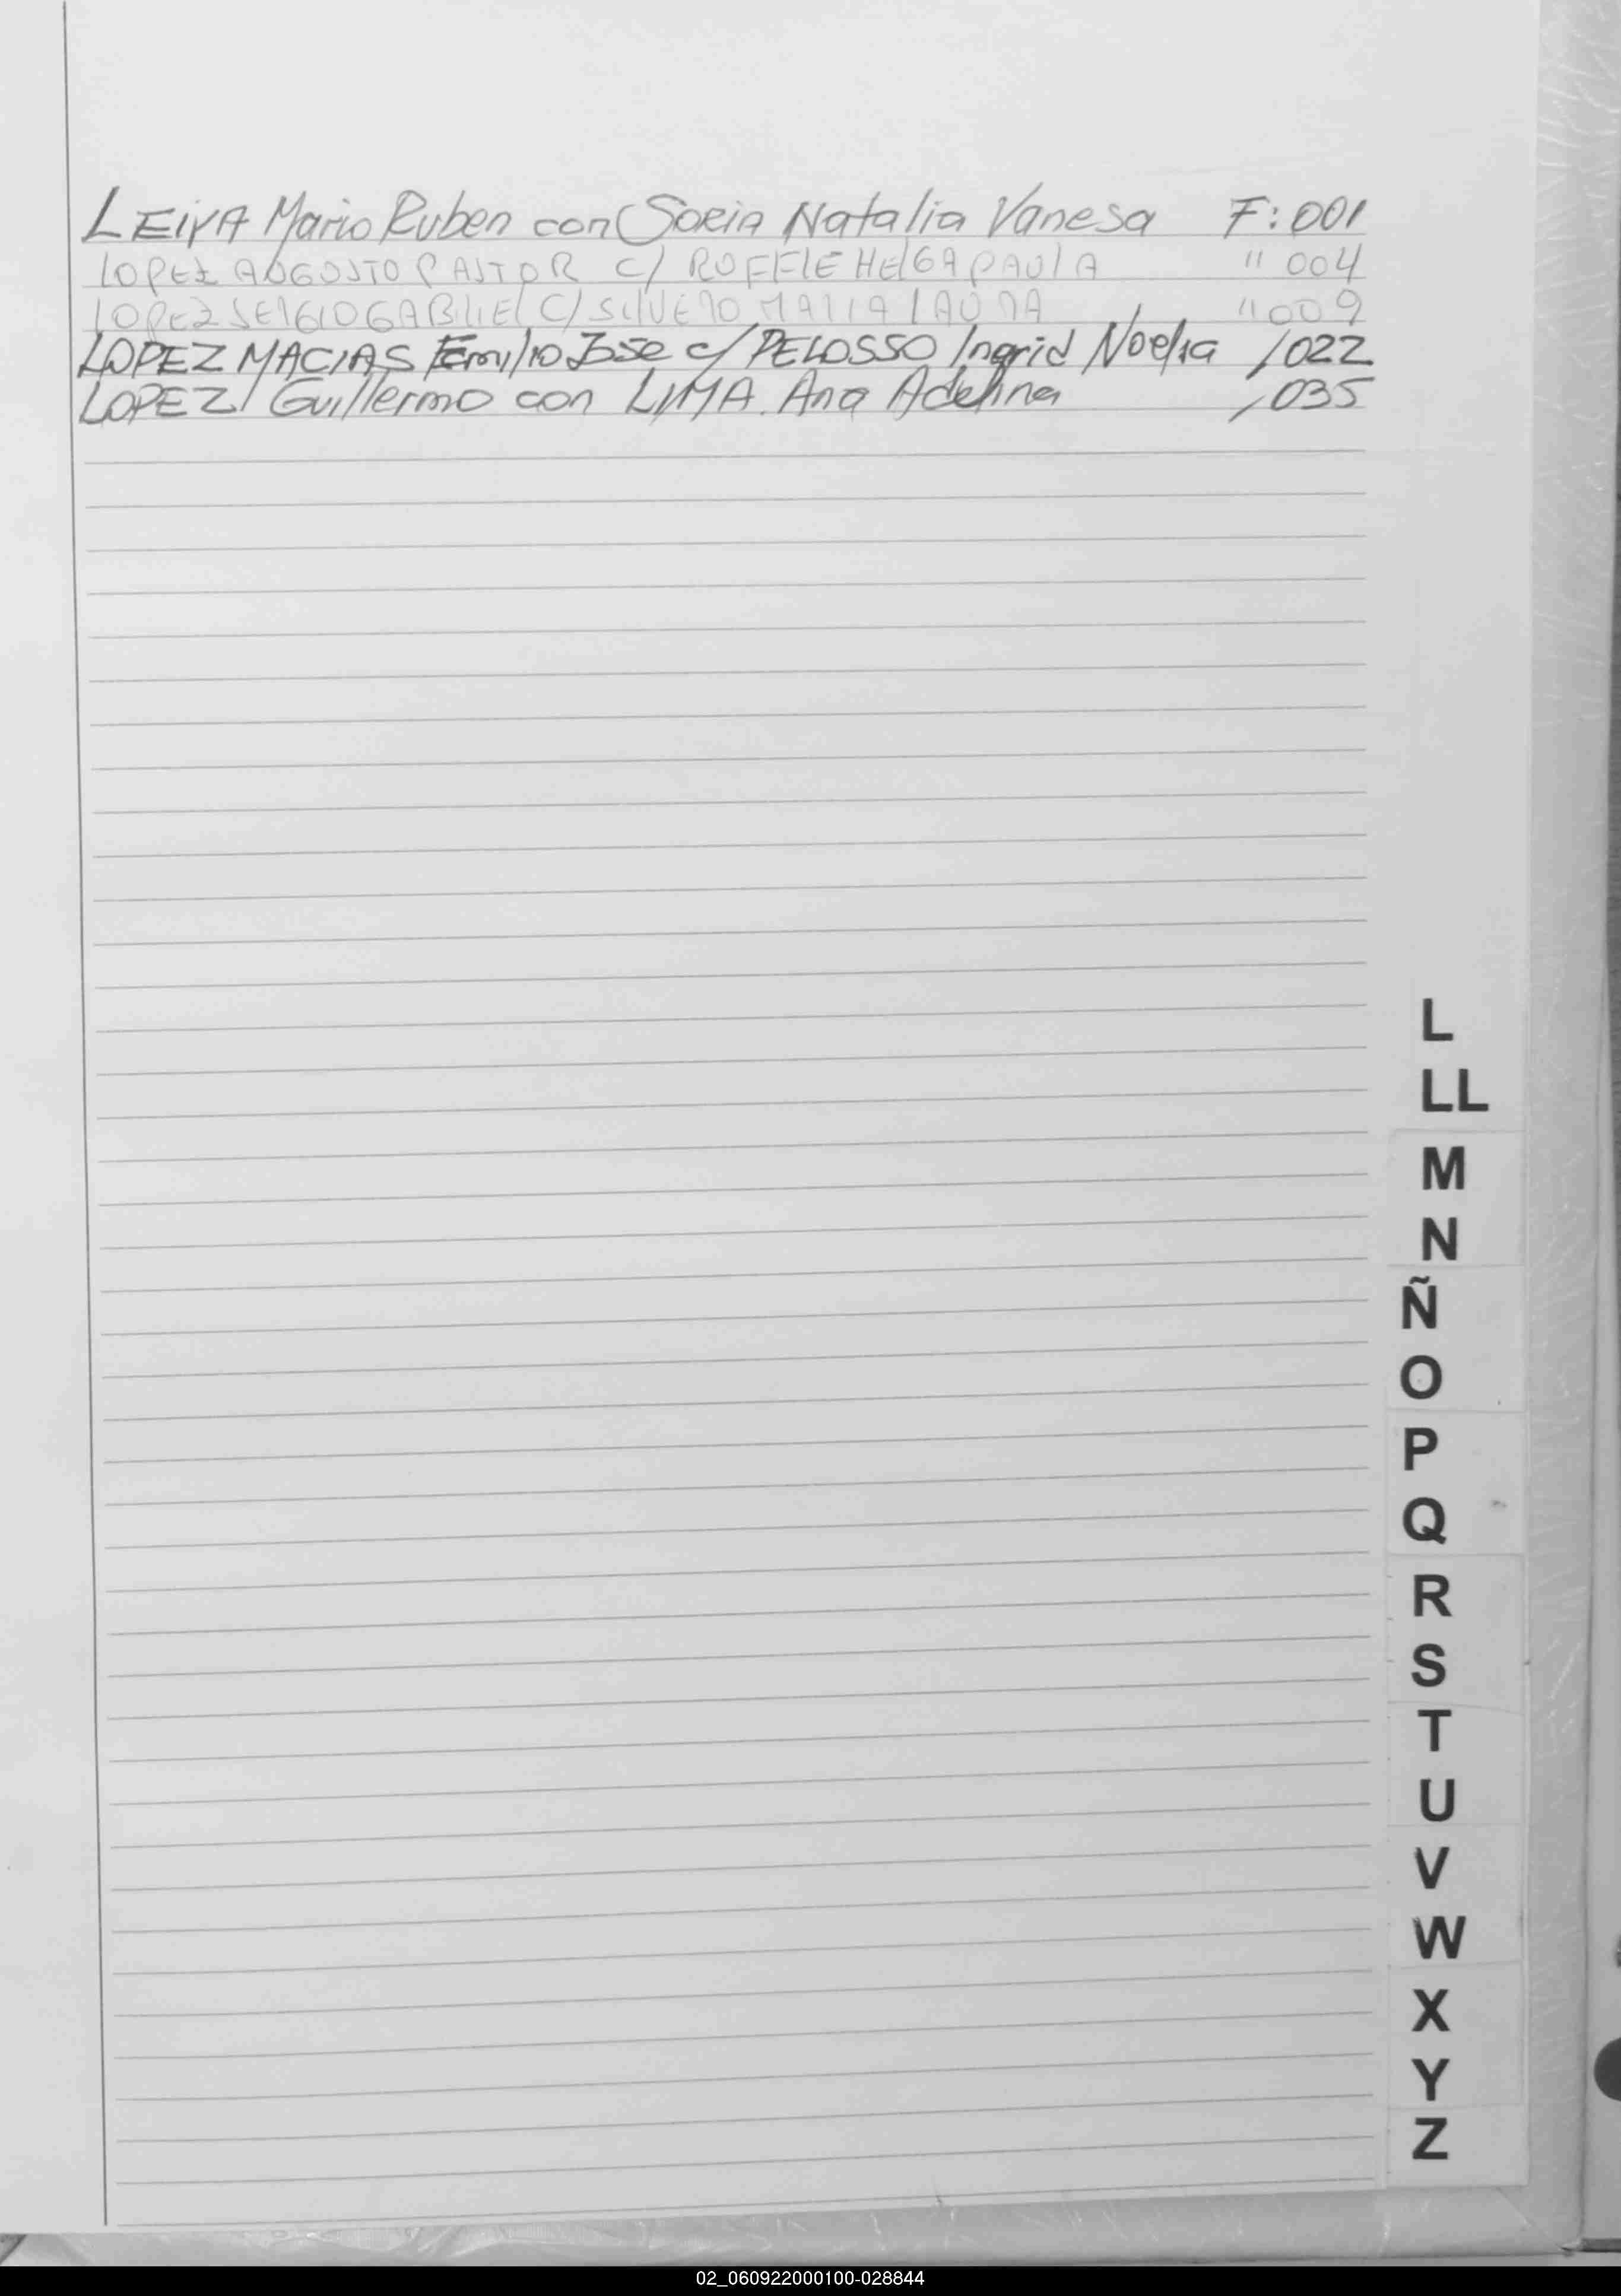 LEIVA Mario Ruben con SORIA Natalia Vanesa F: 001
LOPEZ AUGUSTO PASTOR C/ ROFFIE HELGA PAULA " 004
LOPEZ SERGIO GABRIEL C/ SILVERO MARIA LAURA " 009
LOPEZ MACIAS Emilio Jose c/ PELOSSO Ingrid Noelia / 022
LOPEZ Guillermo con LIMA. Ana Adelina / 035
L
LL
M
N
Ñ
O
P
Q
R
S
T
U
V
W
X
Y
Z
02_060922000100-028844